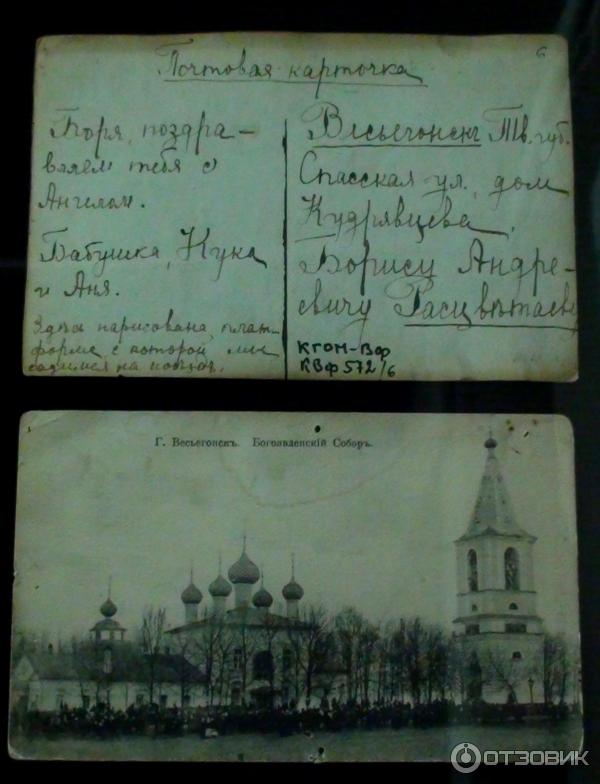 Почтовая карточка
6
Боря, поздра-
вляем тебя с
Ангелом.
Бабушка, Кука
и Аня.
Здѣсь нарисована плат-
форма, с которой мы
садимся на поѣзд.
Весьегонскъ Тв. губ.
Спасская ул., дом
Кудрявцева,
Борису Андре-
евичу Расцвѣтаеву
КГОМ-Вф
КВф 572/6
Г. Весьегонскъ. Богоявленскій Соборъ.
ОТЗОВИК